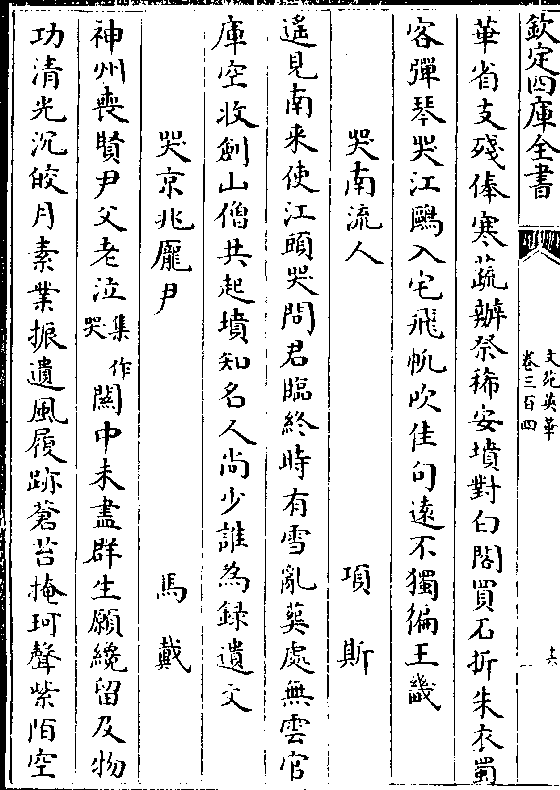 欽定四庫全書
文苑英華
卷三百四
十六
華省支殘俸寒蔬辦祭稀安墳對白閣買石折朱衣蜀
客彈琴哭江鷗入宅飛帆吹佳句遠不獨徧王畿
哭南流人 項斯
遥見南來使江頭哭問君臨終時有雪亂葬處無雲官
庫空收劍山僧共起墳知名人尚少誰為録遺文
哭京兆龎尹 馬戴
神州喪賢尹父老泣集作哭關中未盡群生願纔留及物
功清光沉皎月素業振遺風履跡蒼苔掩珂聲紫陌空